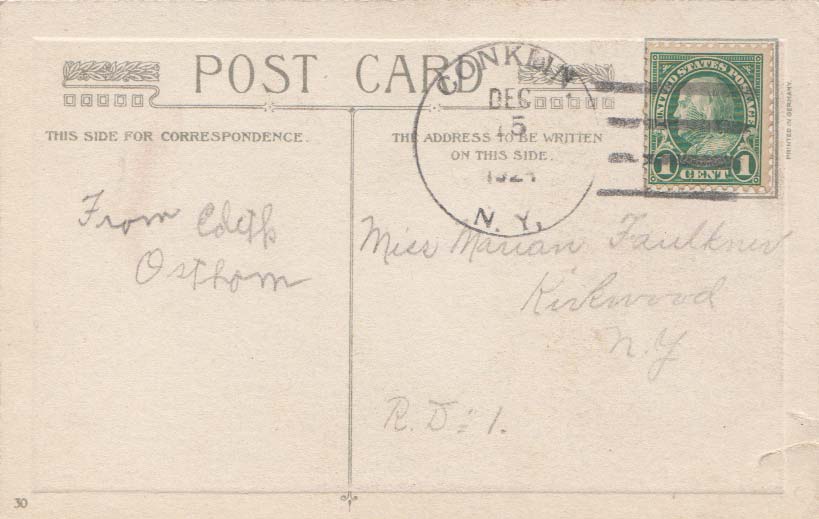 POST CARD
THIS SIDE FOR CORRESPONDENCE.
THE ADDRESS TO BE WRITTEN
ON THIS SIDE.
CONKLIN
DEC
5
N. Y.
UNITED STATES POSTAGE
1 CENT 1
PRINTED IN GERMANY.
From Edith
Osthom
Miss Marian Faulkner
Kirkwood
N.Y
R.D. 1.
30